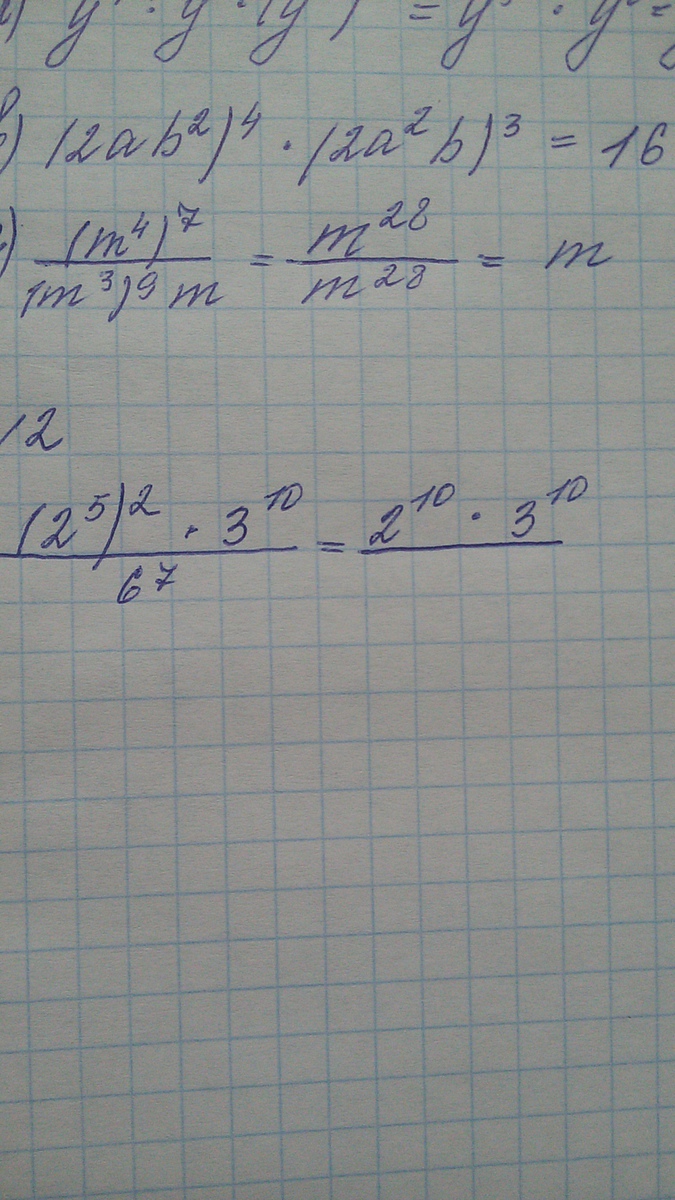 в) (2ab²)⁴ · (2a²b)³ = 16
(m⁴)⁷ / (m³)⁹ m = m²⁸ / m²⁸ = m
12
(2⁵)² · 3¹⁰ / 6⁷ = 2¹⁰ · 3¹⁰